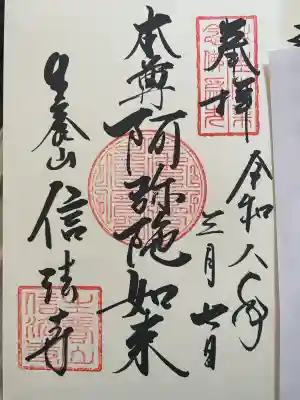 奉拝
令和八年
三月七日
本尊 阿弥陀如来
生養山 信法寺